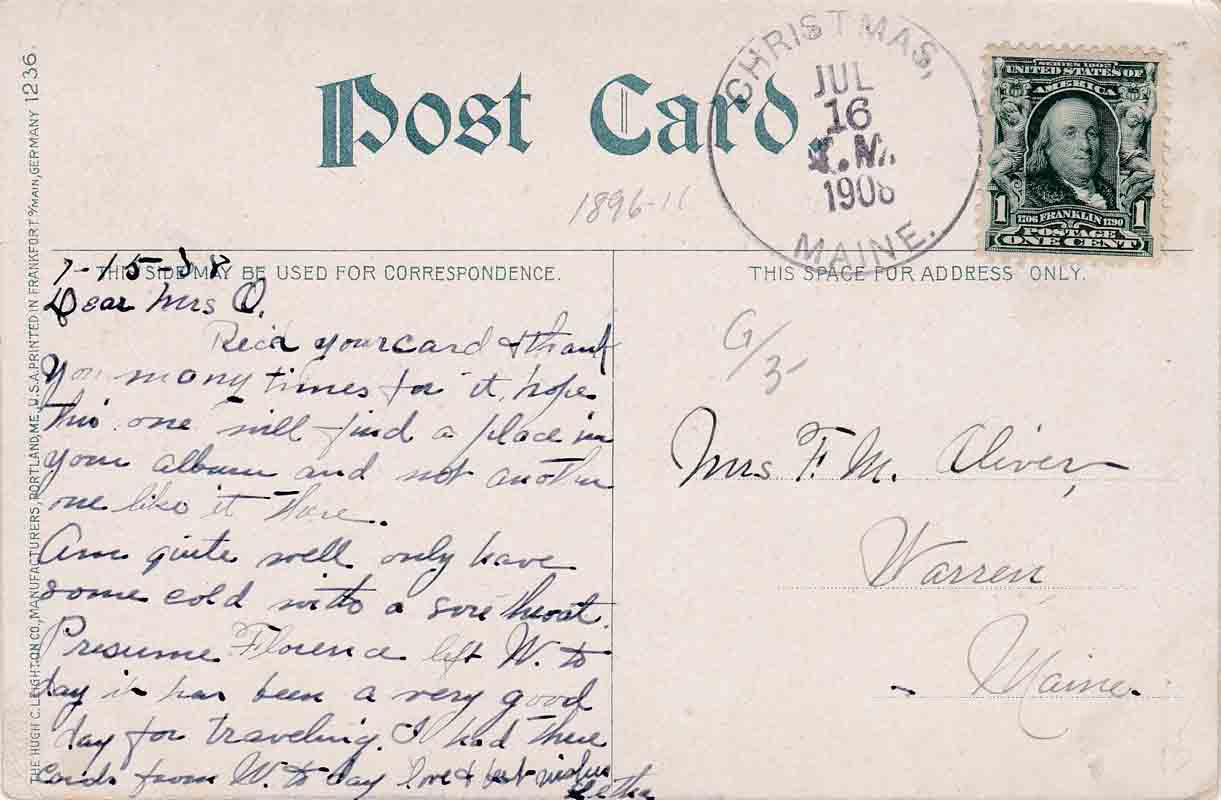 Post Card.
CHRISTMAS,
JUL
16
1908
MAINE.
SERIES 1902
UNITED STATES OF
AMERICA
1 1706 FRANKLIN 1790 1
POSTAGE
ONE CENT
1896-11
THIS SIDE MAY BE USED FOR CORRESPONDENCE.
THIS SPACE FOR ADDRESS ONLY.
THE HUGH C. LEIGHTON CO., MANUFACTURERS, PORTLAND, ME., U.S.A. PRINTED IN FRANKFORT o/MAIN, GERMANY 1236.
7-15-08
Dear Mrs O.
Rec'd your card & thank
you many times for it, hope
this one will find a place in
your album and not another
one like it there.
Am quite well only have
some cold with a sore throat.
Presume Florence left W. to
day it has been a very good
day for traveling. I had three
cards from W. to day love & best wishes
Mrs F. M. Oliver,
Warren,
Maine.